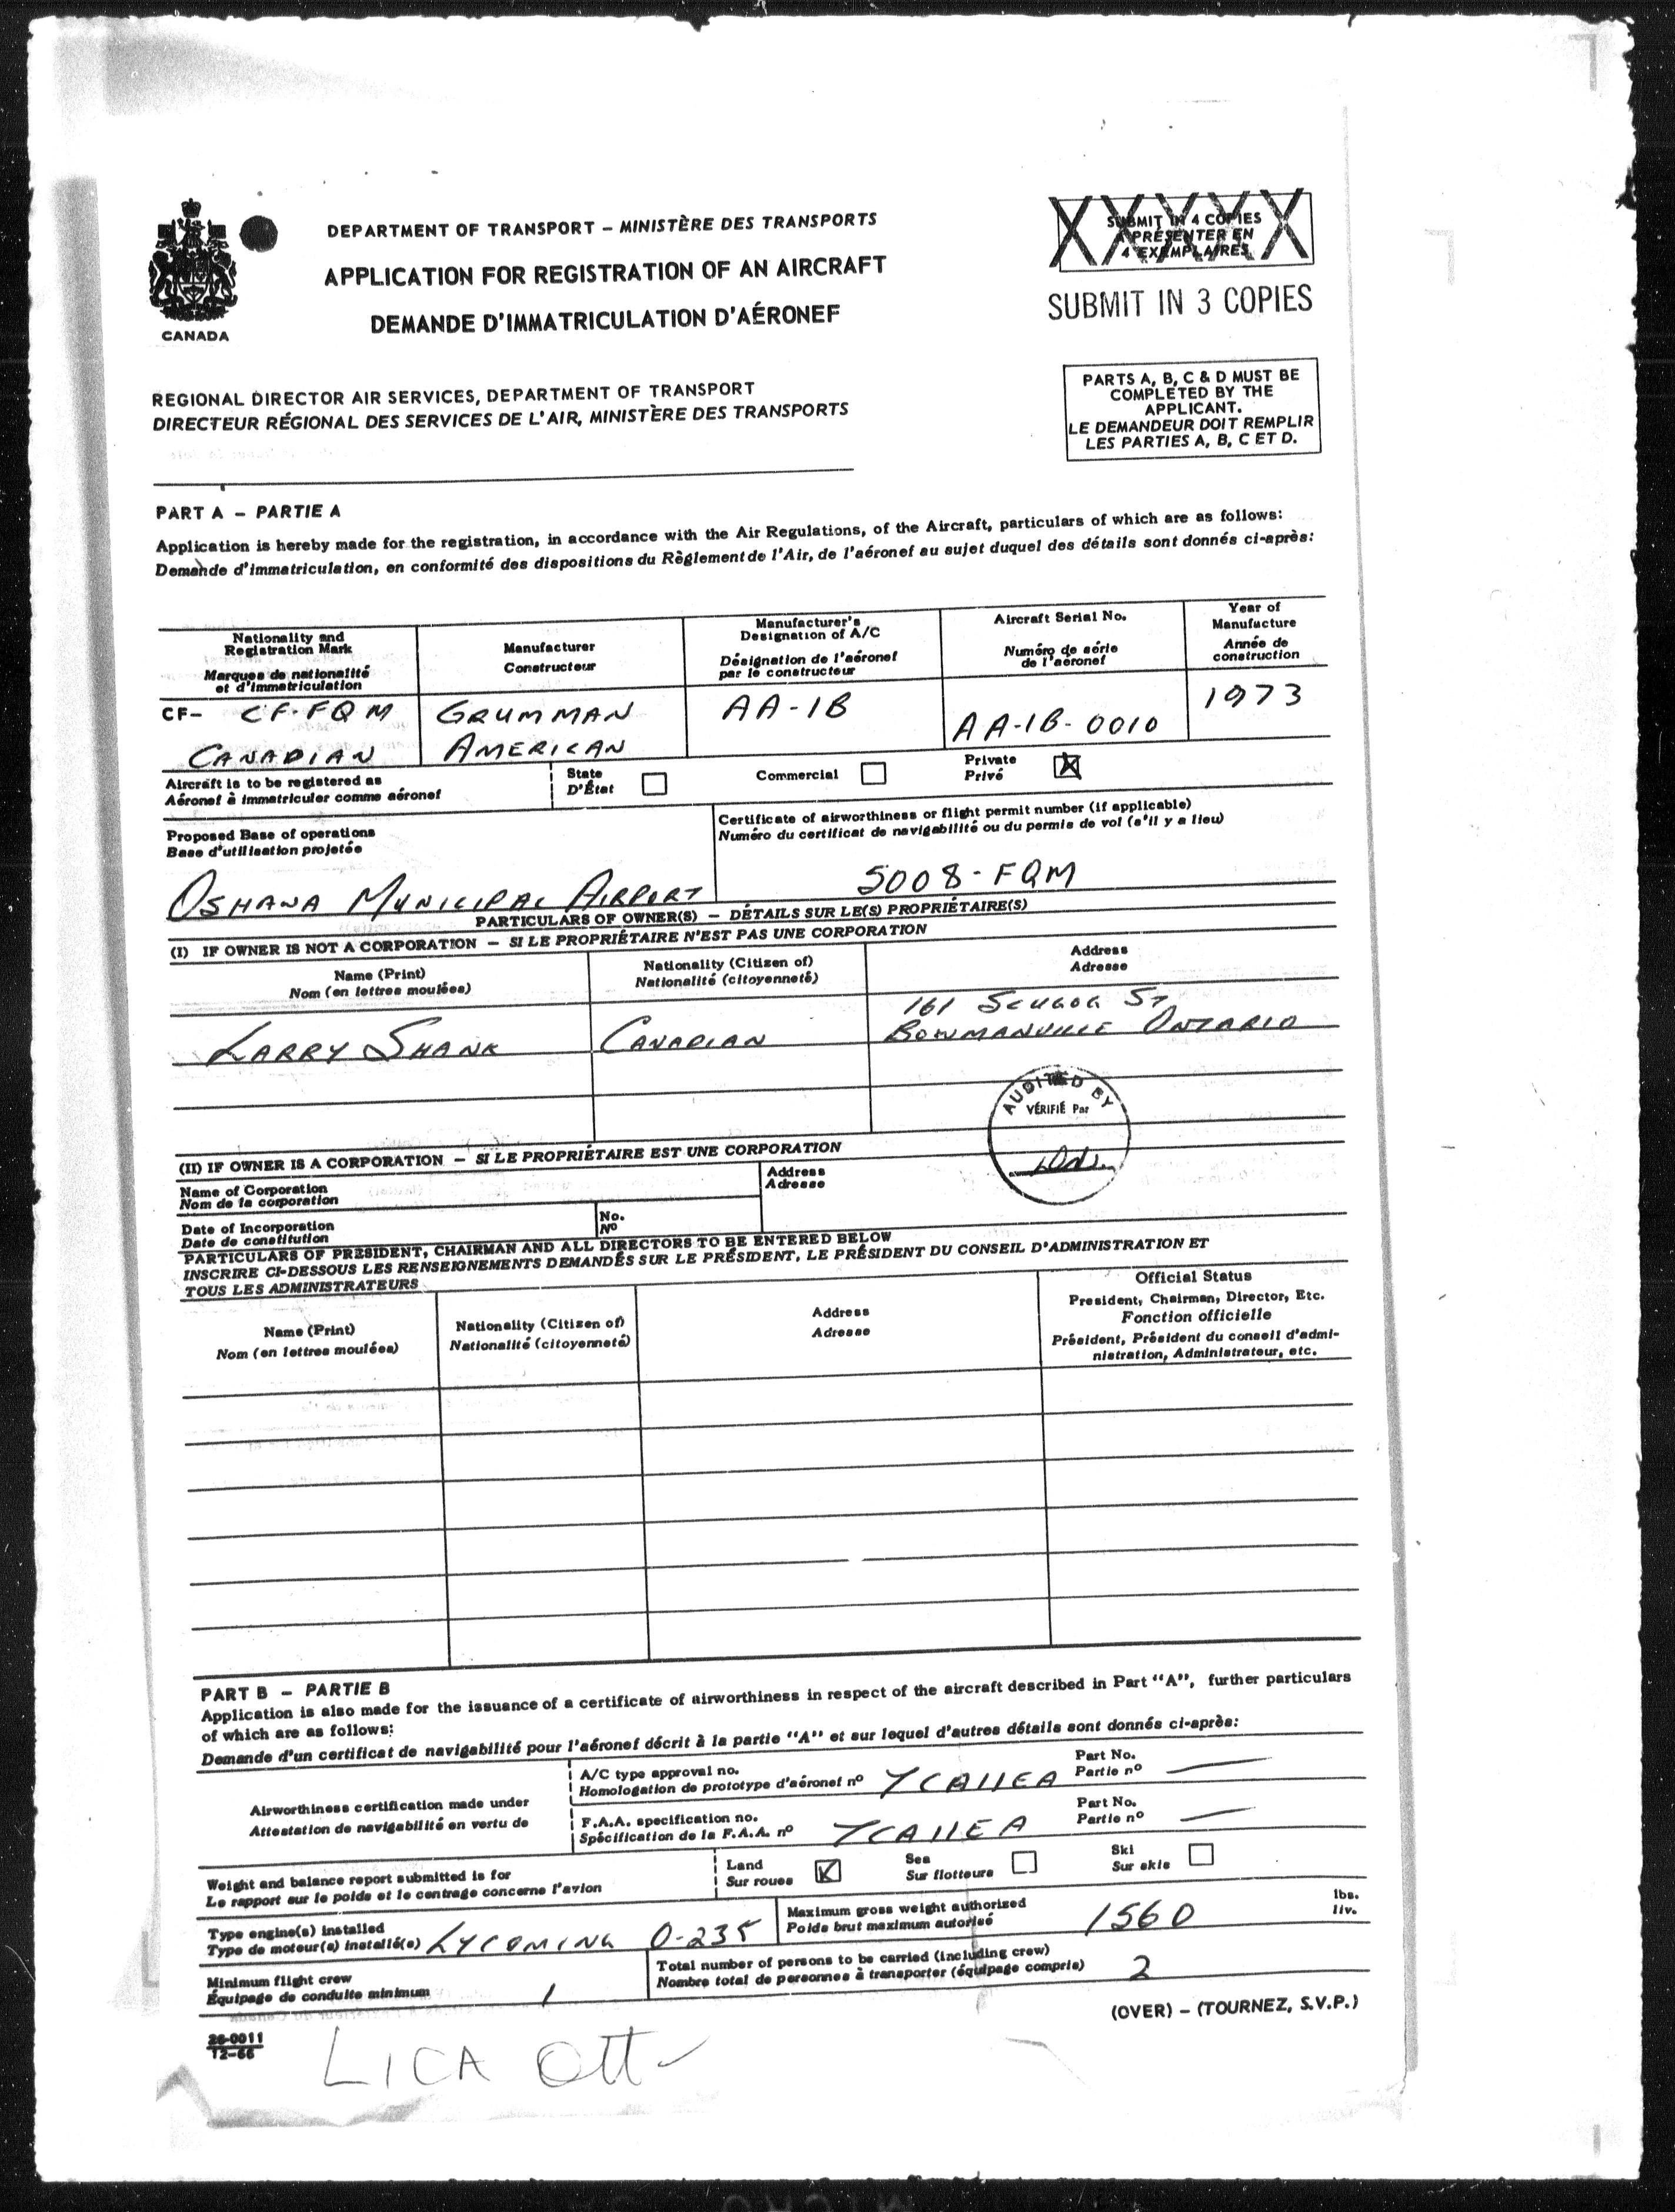 DEPARTMENT OF TRANSPORT – MINISTÈRE DES TRANSPORTS
APPLICATION FOR REGISTRATION OF AN AIRCRAFT
DEMANDE D'IMMATRICULATION D'AÉRONEF
CANADA
SUBMIT IN 4 COPIES
PRÉSENTER EN
4 EXEMPLAIRES
SUBMIT IN 3 COPIES
REGIONAL DIRECTOR AIR SERVICES, DEPARTMENT OF TRANSPORT
DIRECTEUR RÉGIONAL DES SERVICES DE L'AIR, MINISTÈRE DES TRANSPORTS
PARTS A, B, C & D MUST BE
COMPLETED BY THE
APPLICANT.
LE DEMANDEUR DOIT REMPLIR
LES PARTIES A, B, C ET D.
PART A – PARTIE A
Application is hereby made for the registration, in accordance with the Air Regulations, of the Aircraft, particulars of which are as follows:
Demande d'immatriculation, en conformité des dispositions du Règlement de l'Air, de l'aéronef au sujet duquel des détails sont donnés ci-après:
Nationality and
Registration Mark
Marques de nationalité
et d'immatriculation
Manufacturer
Constructeur
Manufacturer's
Designation of A/C
Désignation de l'aéronef
par le constructeur
Aircraft Serial No.
Numéro de série
de l'aéronef
Year of
Manufacture
Année de
construction
CF– CF-FQM
CANADIAN
GRUMMAN
AMERICAN
AA-1B
AA-1B-0010
1973
Aircraft is to be registered as
Aéronef à immatriculer comme aéronef
State
D'État
Commercial
Private
Privé
Proposed Base of operations
Base d'utilisation projetée
OSHAWA MUNICIPAL AIRPORT
Certificate of airworthiness or flight permit number (if applicable)
Numéro du certificat de navigabilité ou du permis de vol (s'il y a lieu)
5008-FQM
PARTICULARS OF OWNER(S) – DÉTAILS SUR LE(S) PROPRIÉTAIRE(S)
(I) IF OWNER IS NOT A CORPORATION – SI LE PROPRIÉTAIRE N'EST PAS UNE CORPORATION
Name (Print)
Nom (en lettres moulées)
Nationality (Citizen of)
Nationalité (citoyenneté)
Address
Adresse
LARRY SHANK
CANADIAN
161 SCUGOG ST
BOWMANVILLE ONTARIO
AUDITED BY
VÉRIFIÉ Par
(II) IF OWNER IS A CORPORATION – SI LE PROPRIÉTAIRE EST UNE CORPORATION
Name of Corporation
Nom de la corporation
Address
Adresse
Date of Incorporation
Date de constitution
No.
Nº
PARTICULARS OF PRESIDENT, CHAIRMAN AND ALL DIRECTORS TO BE ENTERED BELOW
INSCRIRE CI-DESSOUS LES RENSEIGNEMENTS DEMANDÉS SUR LE PRÉSIDENT, LE PRÉSIDENT DU CONSEIL D'ADMINISTRATION ET
TOUS LES ADMINISTRATEURS
Name (Print)
Nom (en lettres moulées)
Nationality (Citizen of)
Nationalité (citoyenneté)
Address
Adresse
Official Status
President, Chairman, Director, Etc.
Fonction officielle
Président, Président du conseil d'admi-
nistration, Administrateur, etc.
PART B – PARTIE B
Application is also made for the issuance of a certificate of airworthiness in respect of the aircraft described in Part "A", further particulars
of which are as follows:
Demande d'un certificat de navigabilité pour l'aéronef décrit à la partie "A" et sur lequel d'autres détails sont donnés ci-après:
Airworthiness certification made under
Attestation de navigabilité en vertu de
A/C type approval no.
Homologation de prototype d'aéronef nº 7CA11EA
Part No.
Partie nº
F.A.A. specification no.
Spécification de la F.A.A. nº 7CA11EA
Part No.
Partie nº
Weight and balance report submitted is for
Le rapport sur le poids et le centrage concerne l'avion
Land
Sur roues
Sea
Sur flotteurs
Ski
Sur skis
Type engine(s) installed
Type de moteur(s) installé(s) LYCOMING O-235
Maximum gross weight authorized
Poids brut maximum autorisé
1560
lbs.
liv.
Minimum flight crew
Équipage de conduite minimum 1
Total number of persons to be carried (including crew)
Nombre total de personnes à transporter (équipage compris) 2
(OVER) – (TOURNEZ, S.V.P.)
26-0011
12-66
LICA Ott